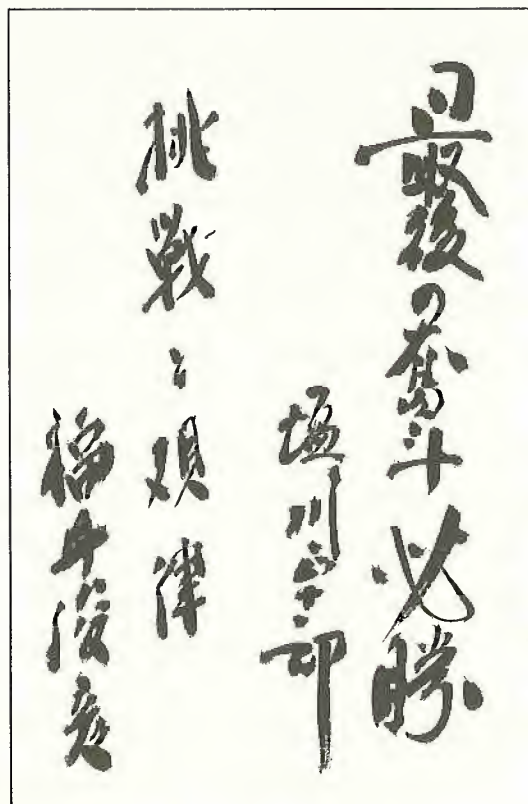 最後の奮斗必勝
塩川正十郎
挑戦と規律
福井俊彦